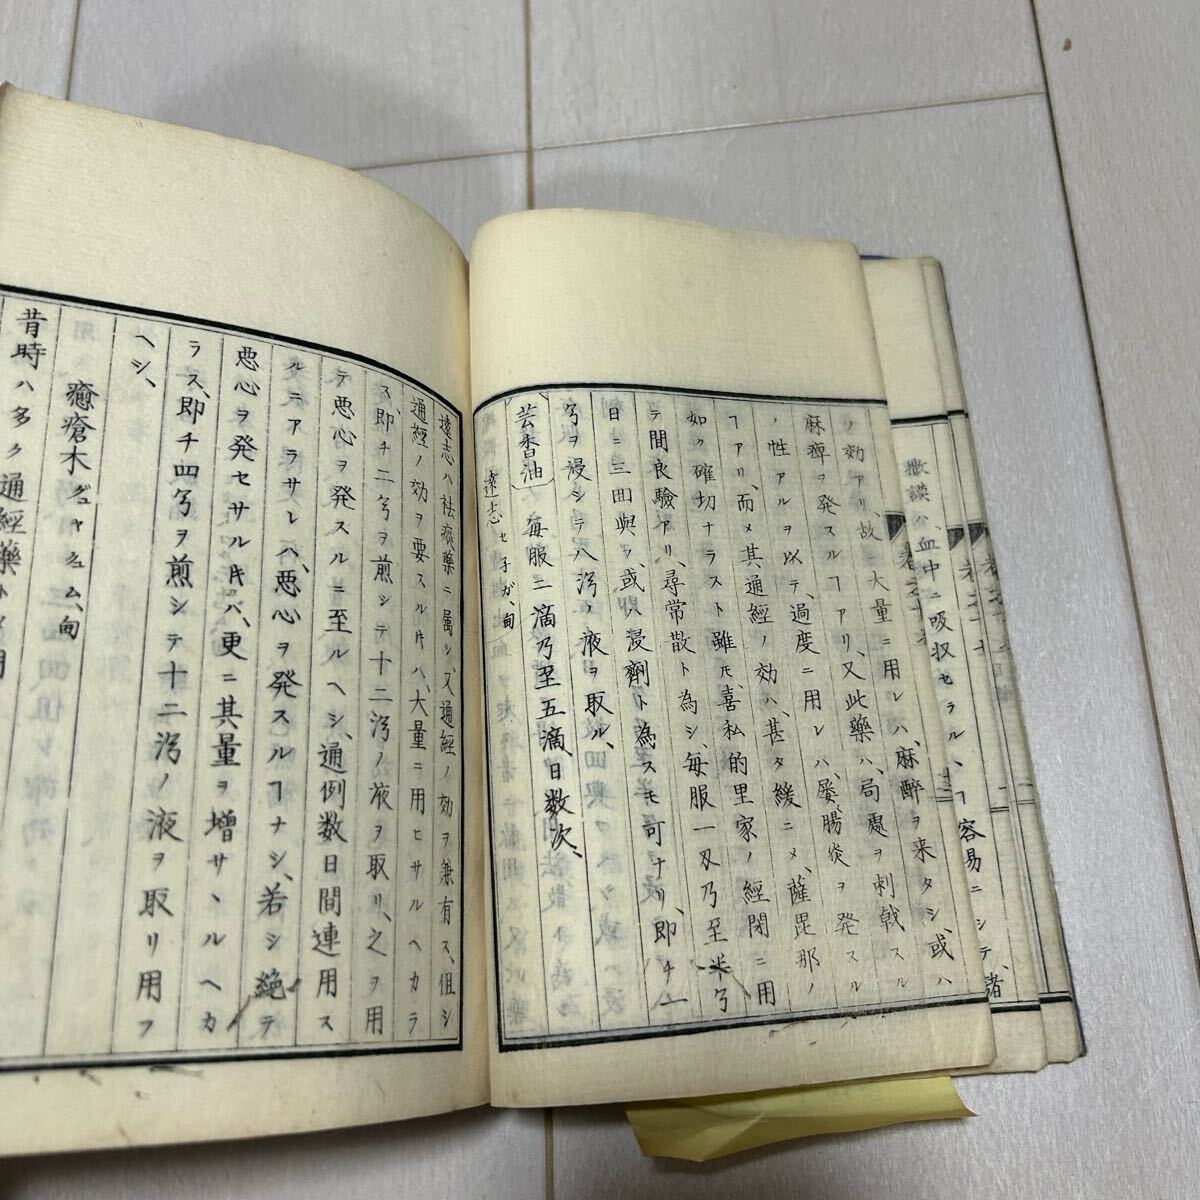 撒謨ハ血中ニ吸収セラルヽヿ容易ニシテ、諸
ノ効アリ、故ニ大量ニ用レハ、麻醉ヲ来タシ、或ハ
麻痺ヲ発スルヿアリ、又此藥ハ、局處ヲ刺戟スル
ノ性アルヲ以テ、過度ニ用レハ、屡腸炎ヲ発スル
ヿアリ、而メ其通經ノ効ハ、甚タ緩ニメ、薩毘那ノ
如ク確切ナラスト雖モ、喜私的里家ノ經閉ニ用
テ間良驗アリ、尋常散ト為シ、毎服一刄乃至半匁
日ニ三囬與ヲ、或ハ浸劑ト為スモ可ナリ、即チ一
匁ヲ浸シテ八湾ノ液ヲ取ル、
芸香油 毎服二滴乃至五滴、日数次、
遠志 セ子ガ、甸
遠志ハ祛痰藥ニ属シ、又通經ノ効ヲ兼有ス、伹シ
通經ノ効ヲ要スル片ハ、大量ニ用ヒサルヘカラ
ス、即チ二匁ヲ煎シテ十二湾ノ液ヲ取リ、之ヲ用
テ悪心ヲ発スルニ至ルヘシ、通例数日間連用ス
ルテアラサレハ、悪心ヲ発スルヿナシ、若シ絶テ
悪心ヲ発セサル片ハ、更ニ其量ヲ増サヽルヘカ
ラス、即チ四匁ヲ煎シテ十二湾ノ液ヲ取リ用フ
ヘシ、
癒瘡木 グュヤシュム、甸
昔時ハ多ク通經藥トメ用